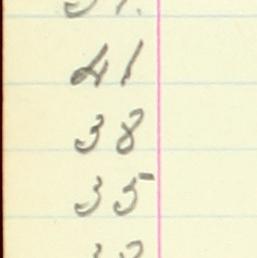 41
38
35